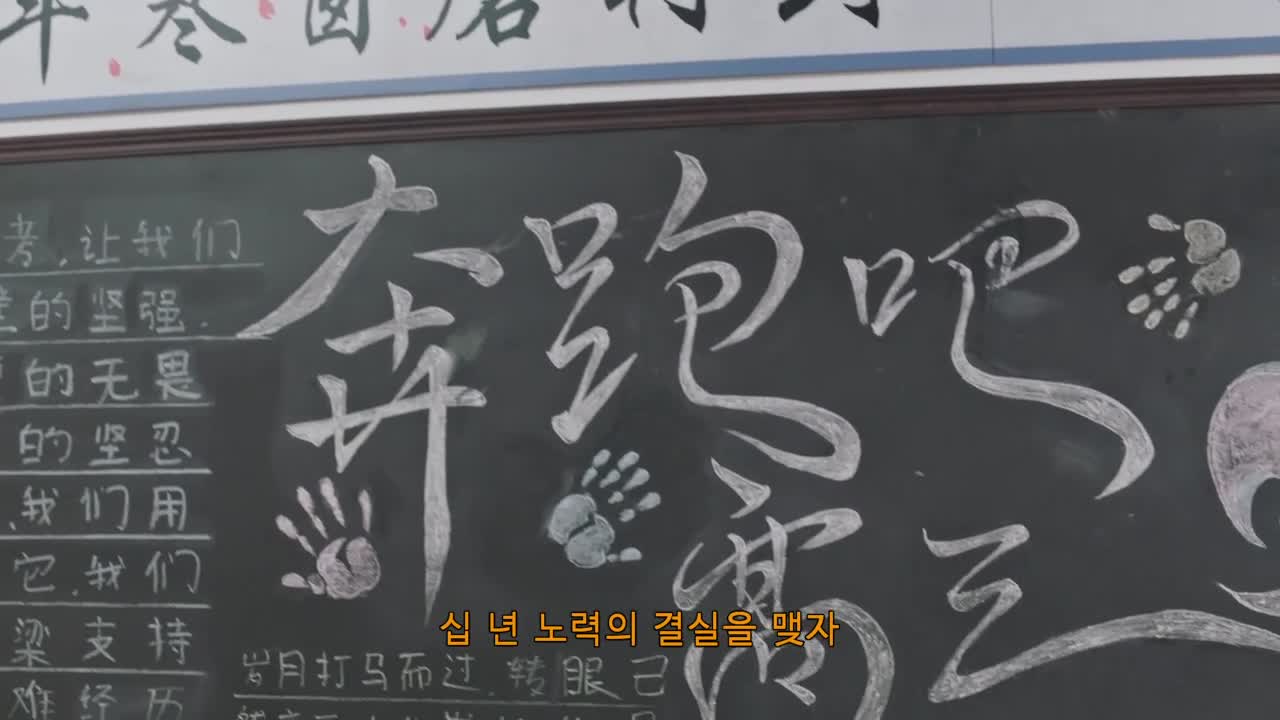 年寒窗磨
奔跑吧
高三
考,让我们
的坚强.
的无畏
的坚忍
,我们用
它,我们
梁支持
难经历
岁月打马而过,转眼已
십 년 노력의 결실을 맺자